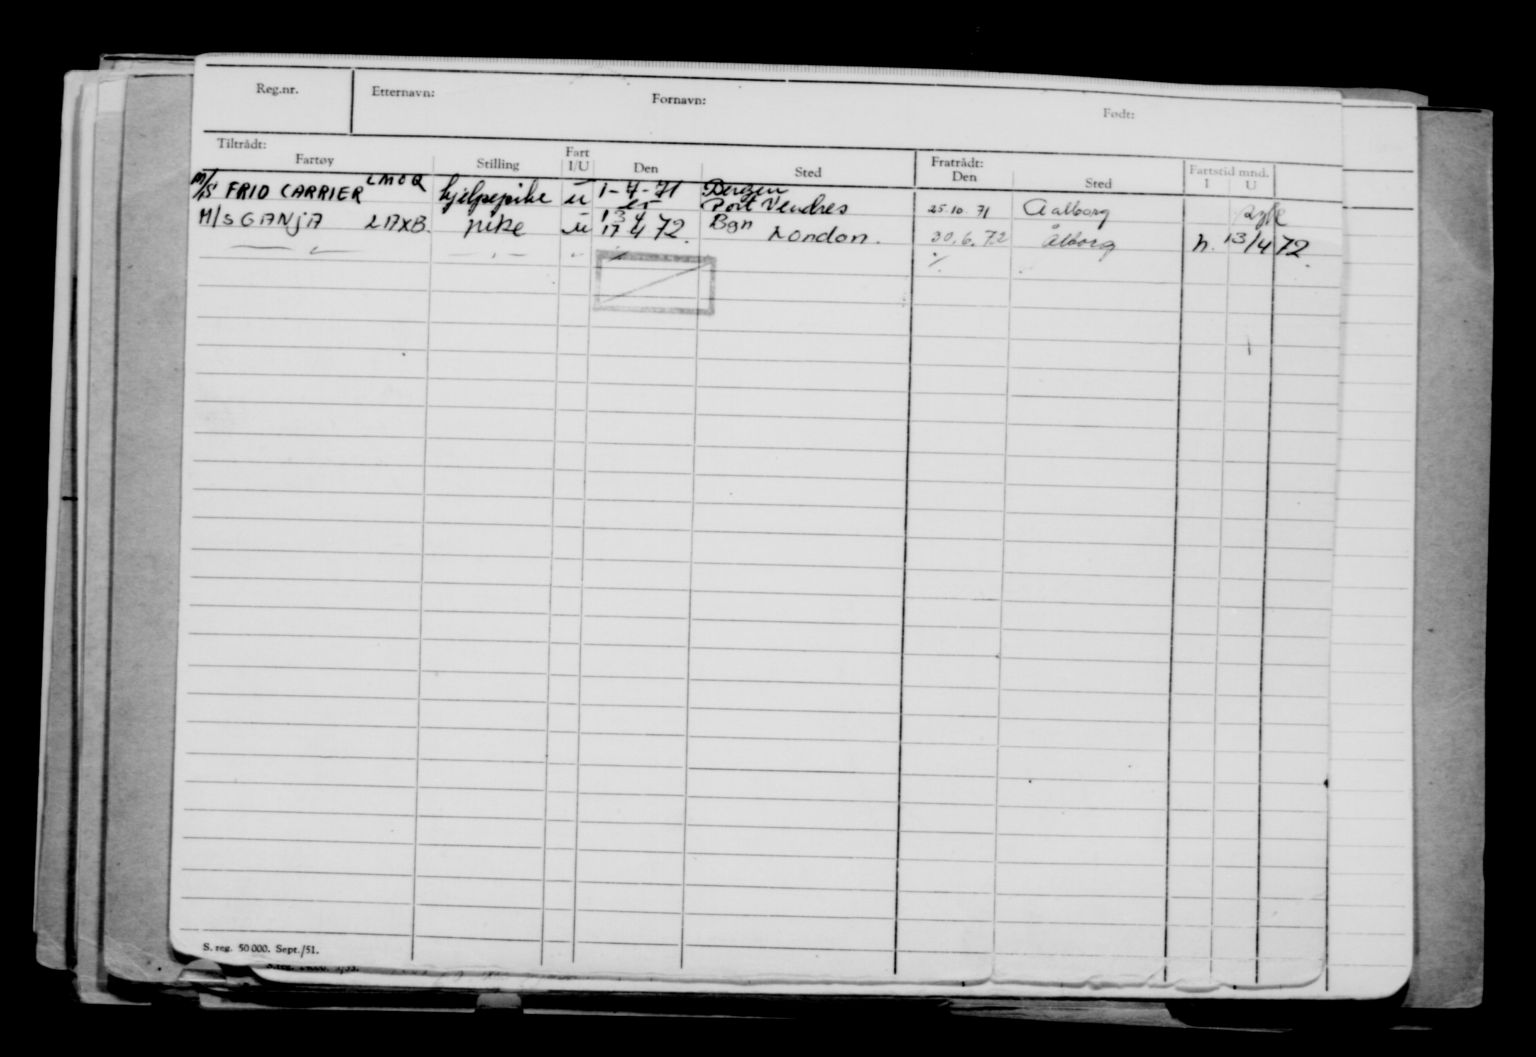 Reg.nr. Etternavn: Fornavn: Født:
Tiltrådt: Fratrådt:
Fartøy Stilling Fart I/U Den Sted Den Sted Fartstid mnd. I U
M/S FRIO CARRIER LMOQ hjelpepike u 1-4-71 Bergen
Port Vendres 25.10.71 Aalborg
M/S GANJA LAXB. pike u 13 4 Bgn
17 4 72. London. 30.6.72 Ålborg h. 13/4 72.
S. reg. 50 000. Sept./51.